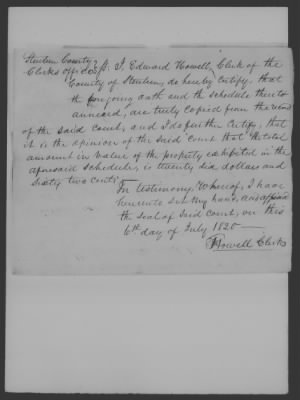 Steuben County }
Clerks office } ss. I Edward Howell, Clerk of the
County of Steuben, do hereby certify, that
the foregoing oath and the schedule thereto
annexed, are truly copied from the record
of the said court, and I do further certify, that
it is the opinion of the said court that the total
amount in value of the property exhibited in the
aforesaid schedule, is twenty six dollars and
sixty two cents
In testimony Whereof, I have
hereunto set my hand, and affixed
the seal of said court, on this
6th day of July 1820
E Howell Clerk